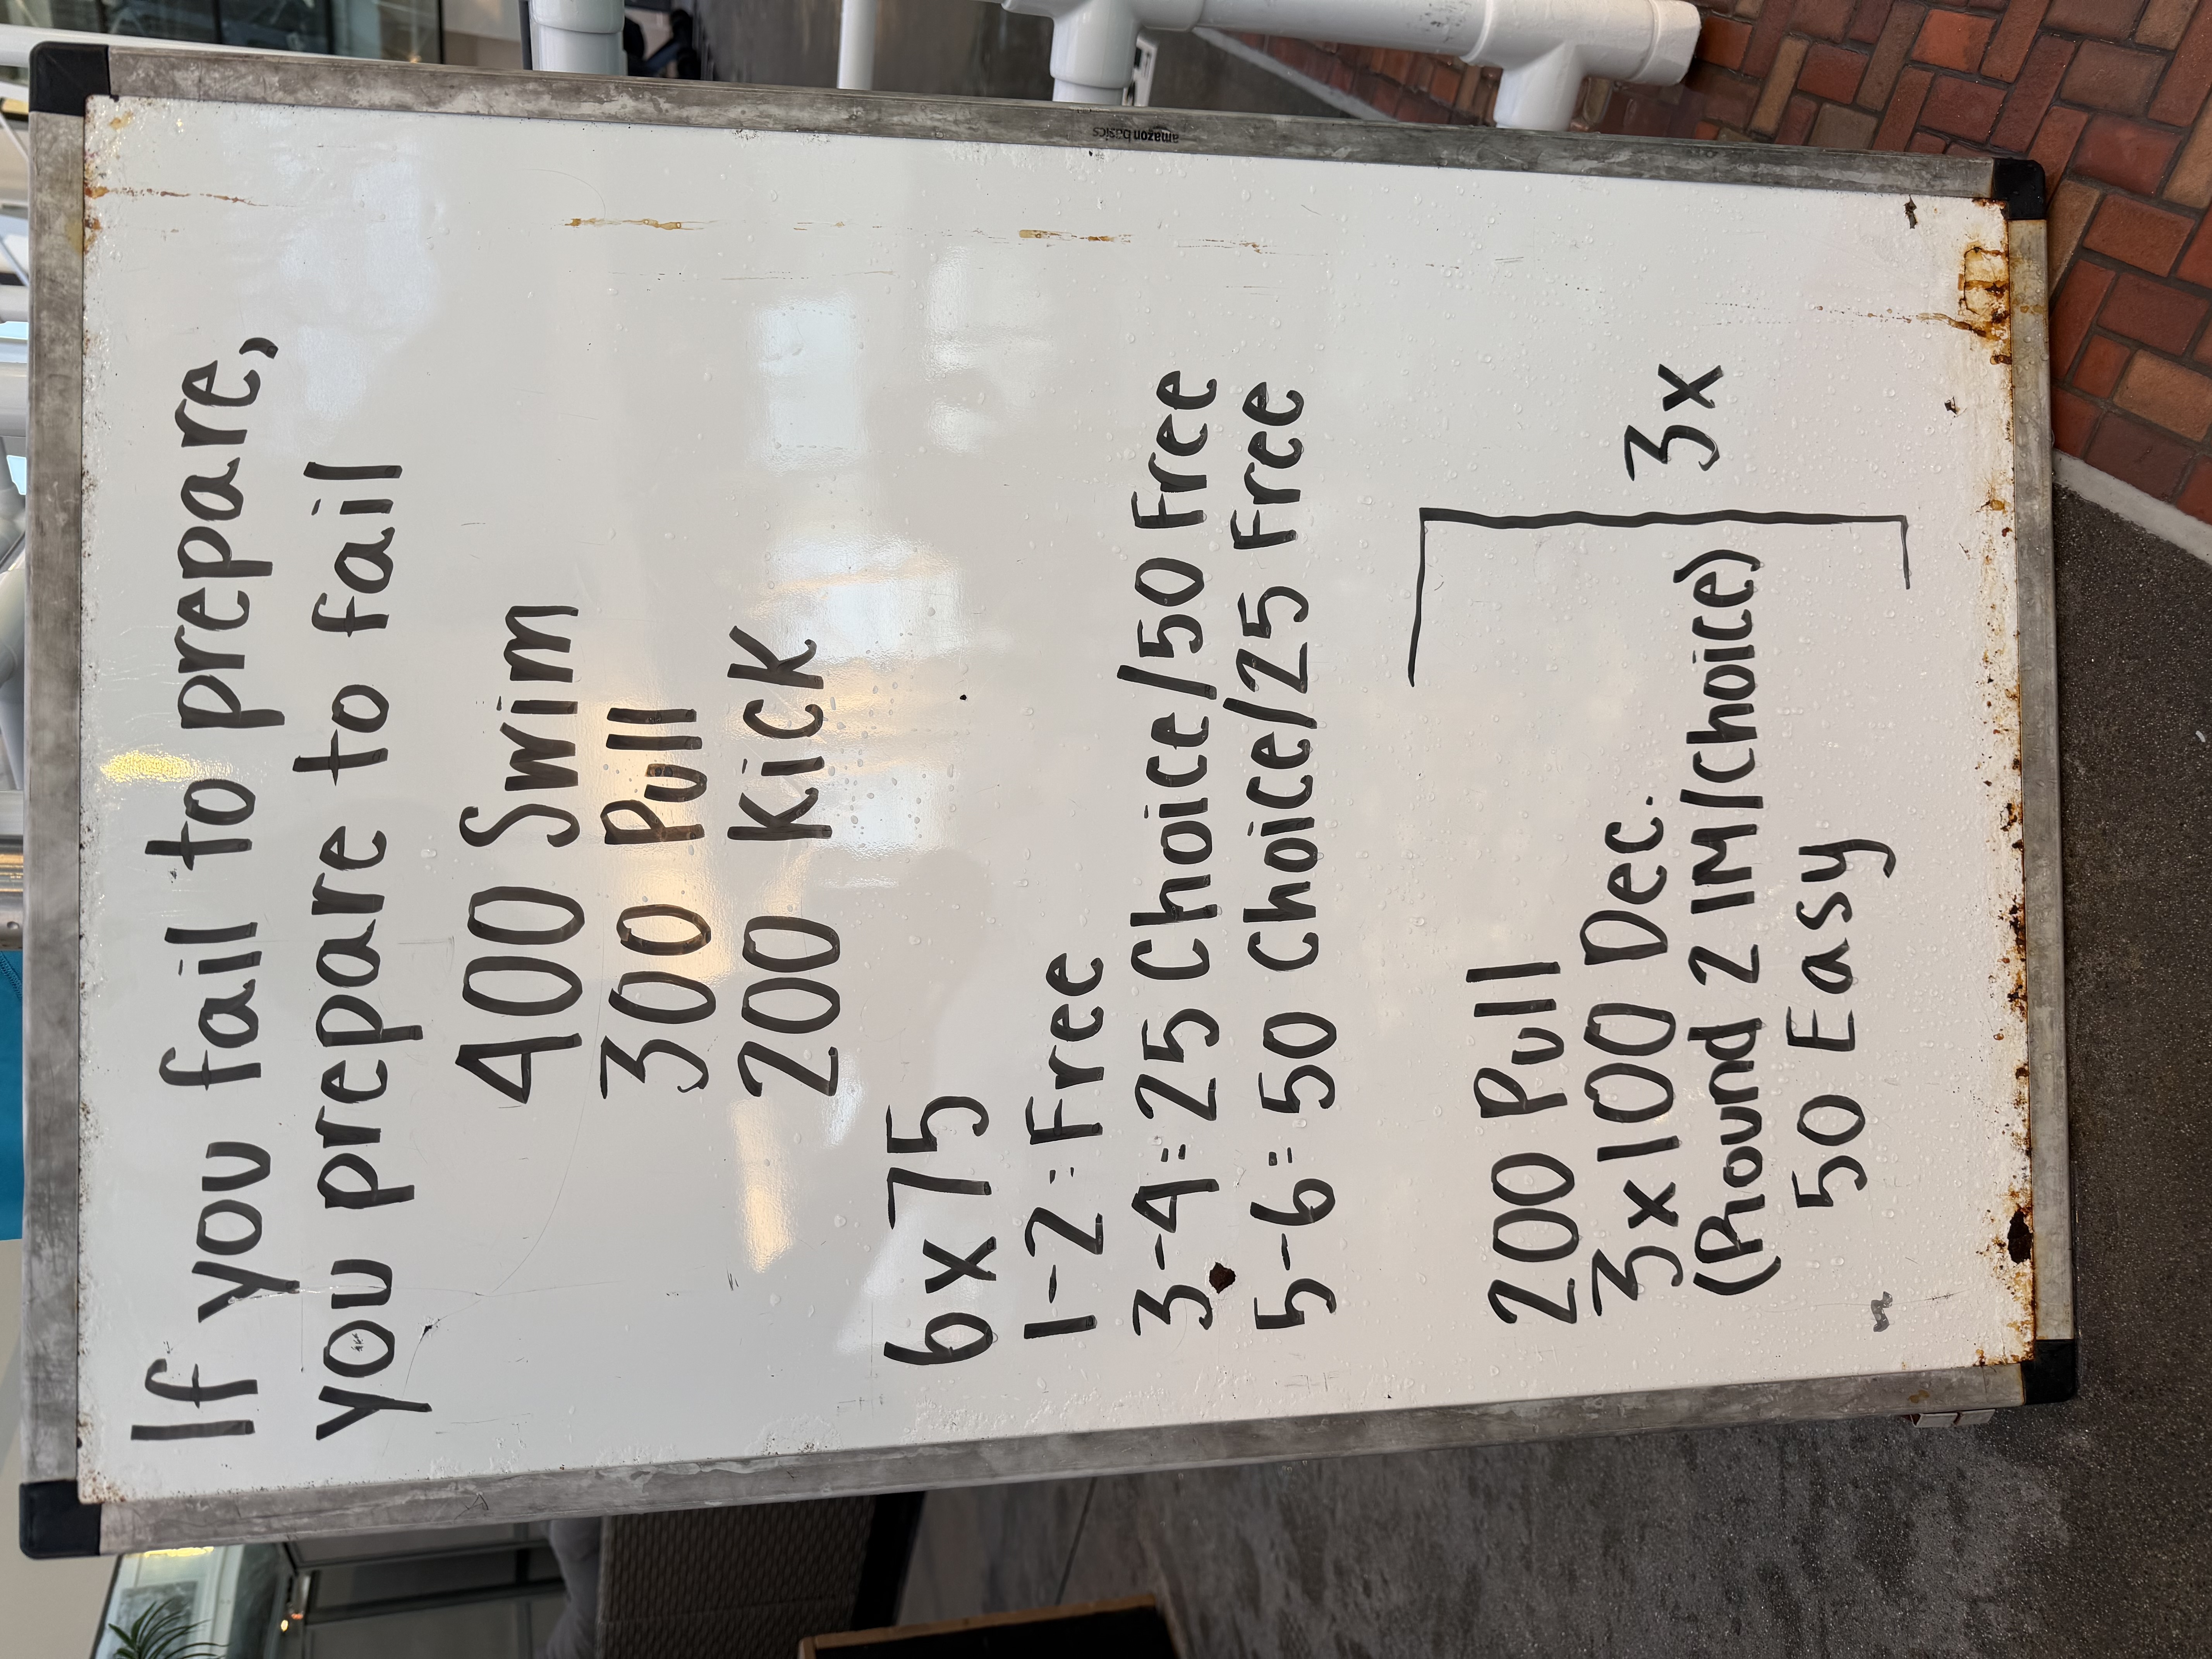 If you fail to prepare,
you prepare to fail
400 Swim
300 Pull
200 Kick
6x75
1-2 = Free
3-4 = 25 Choice/50 Free
5-6 = 50 Choice/25 Free
200 Pull
3x100 Dec.
(Round 2 IM/choice)
50 Easy
3x
amazon basics